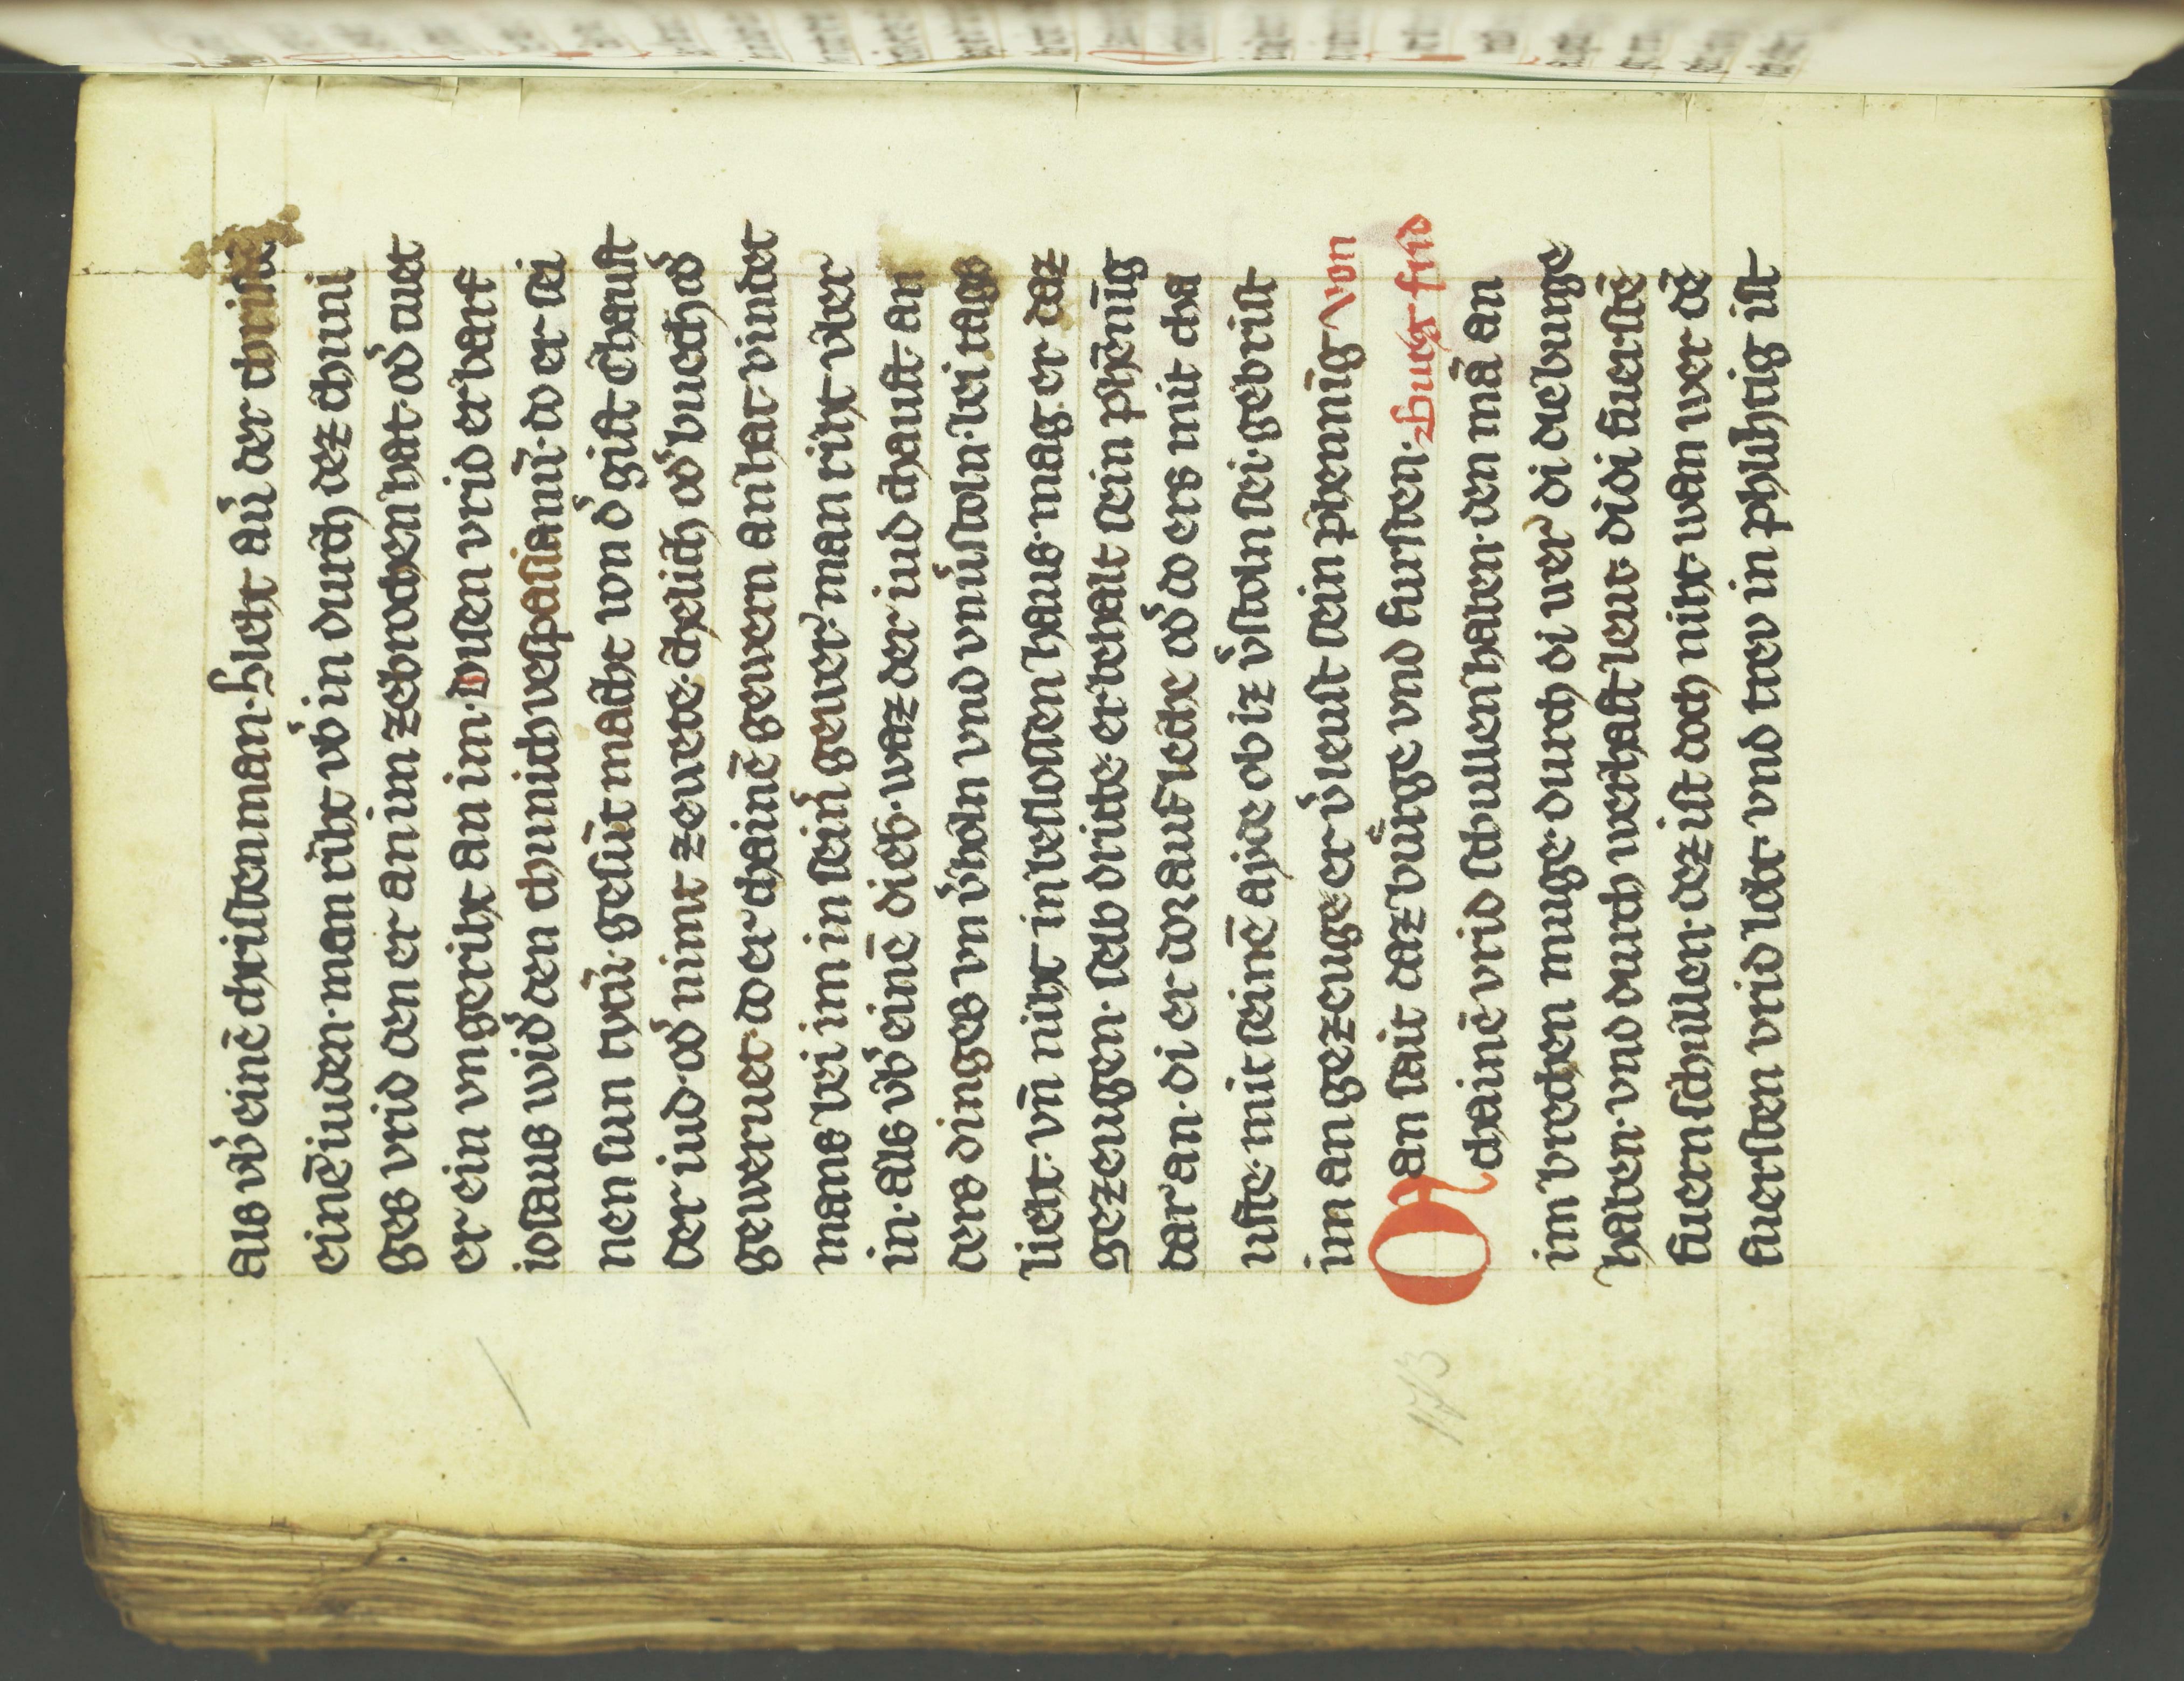 als vb̾ einē christenman. Slecht aū der christē
einē iuden. man riht vb̾ in durch dez chuni
ges vrid den er an im zebrochen hat. od̾ auet
er ein vngeriht an im. Disen vrid erbarf
iosaus wid̾ den chunich vespasianū. do er sei
nen sun tytū. gesūt macht von d̾ gift. Chauft
der iud. od̾ nimt zewete. chelich od̾ buech od̾
gewerwet. do er chainē gewern an hat. vindet
mans bei im in sein̾ gewer. man riht vber
in. als vb̾ einē dieb. waz der iud chauft. an
ders dinges vn v̾holn vnd vnu̾stoln. bei tages
lieht. vn̄ niht in beslossen haus. mag er daz
gezeugen. selb dritte. er behalt sein phēnīg
dar an. di er dor auf lecht od̾ do ers mit cha
ufte. mit seinē ayde ob iz v̾stoln sei. gebrist
im an gezeuge. er v̾leust sein phennīg Von
Man sait daz bürge vnd fursten. Burgt frid
chainē vrid schullen haben. den mā an
im brechen muge. durch di wer di die burge
haben. vnd durch werhaft leut. di di fuerstē
fuern schullen. dez ist doch niht. wan wer dē
fuersten vrid lobt. vnd trev in phlihtig ist
173